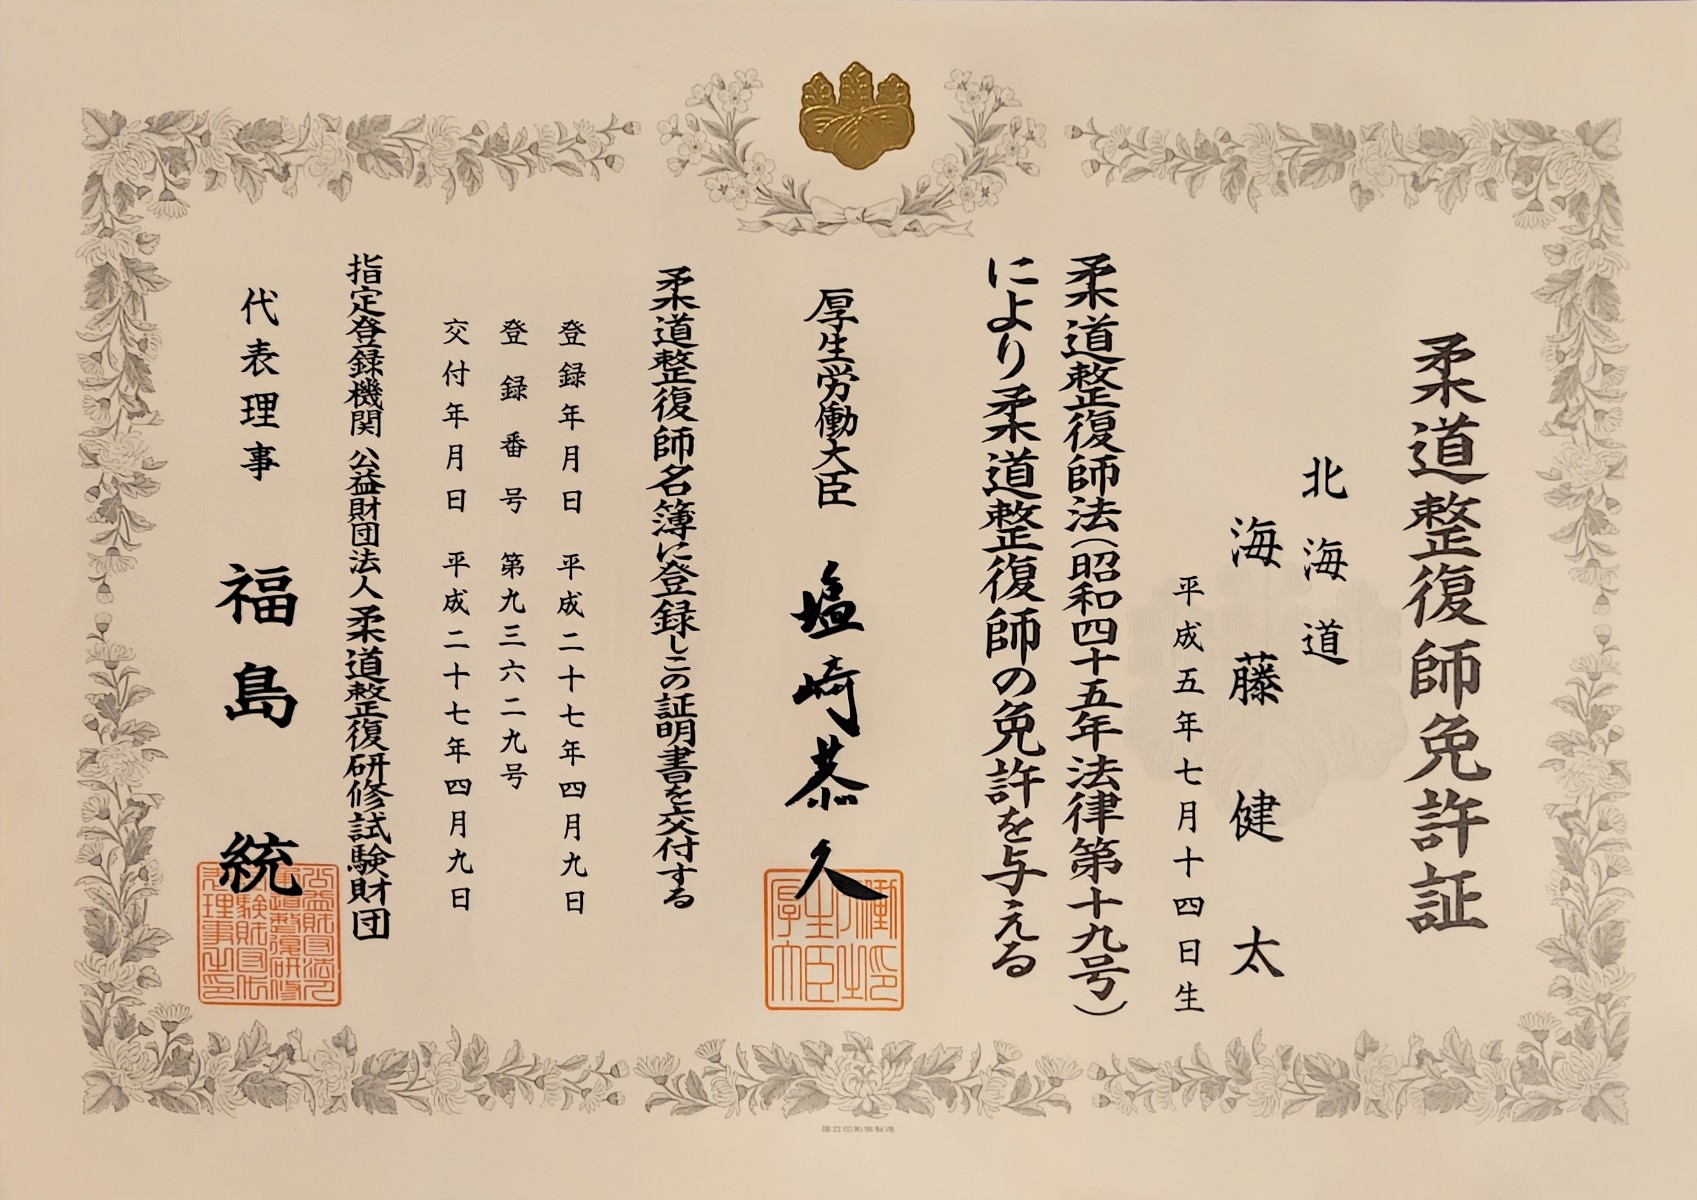 柔道整復師免許証
北海道
海藤健太
平成五年七月十四日生
柔道整復師法(昭和四十五年法律第十九号)
により柔道整復師の免許を与える
厚生労働大臣 塩崎恭久
柔道整復師名簿に登録しこの証明書を交付する
登録年月日 平成二十七年四月九日
登録番号 第九三六二九号
交付年月日 平成二十七年四月九日
指定登録機関 公益財団法人 柔道整復研修試験財団
代表理事 福島統
国立印刷局製造